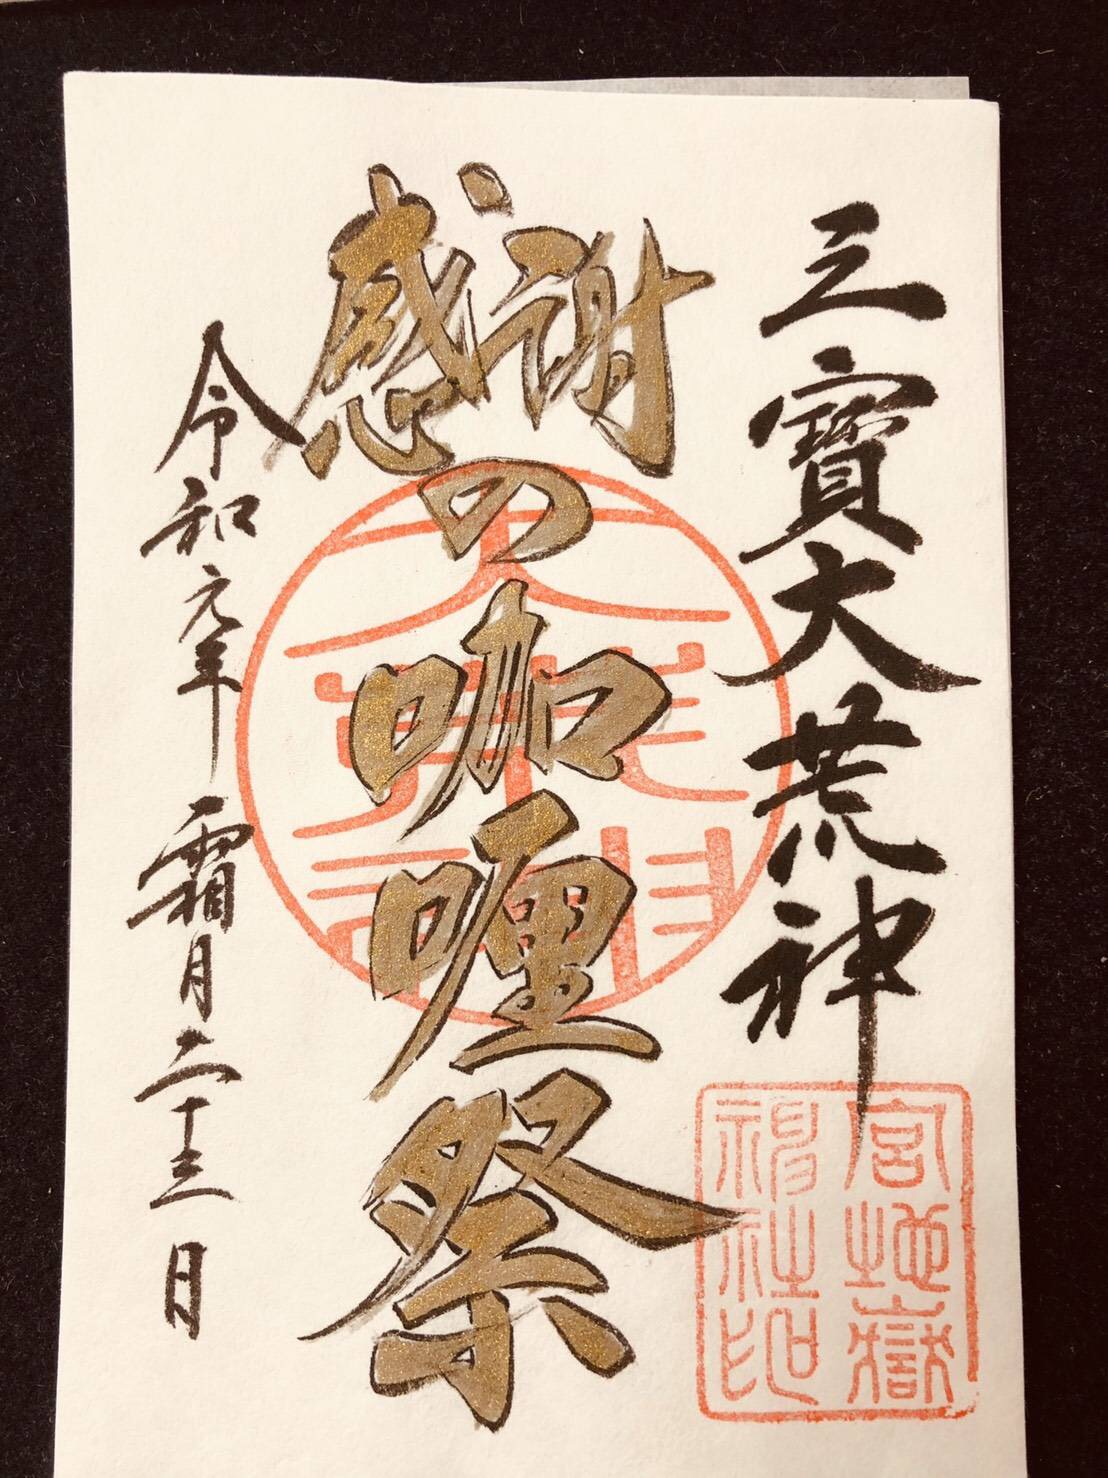 三寳大荒神
感謝の咖喱祭
令和元年 霜月二十三日
宮地嶽神社印